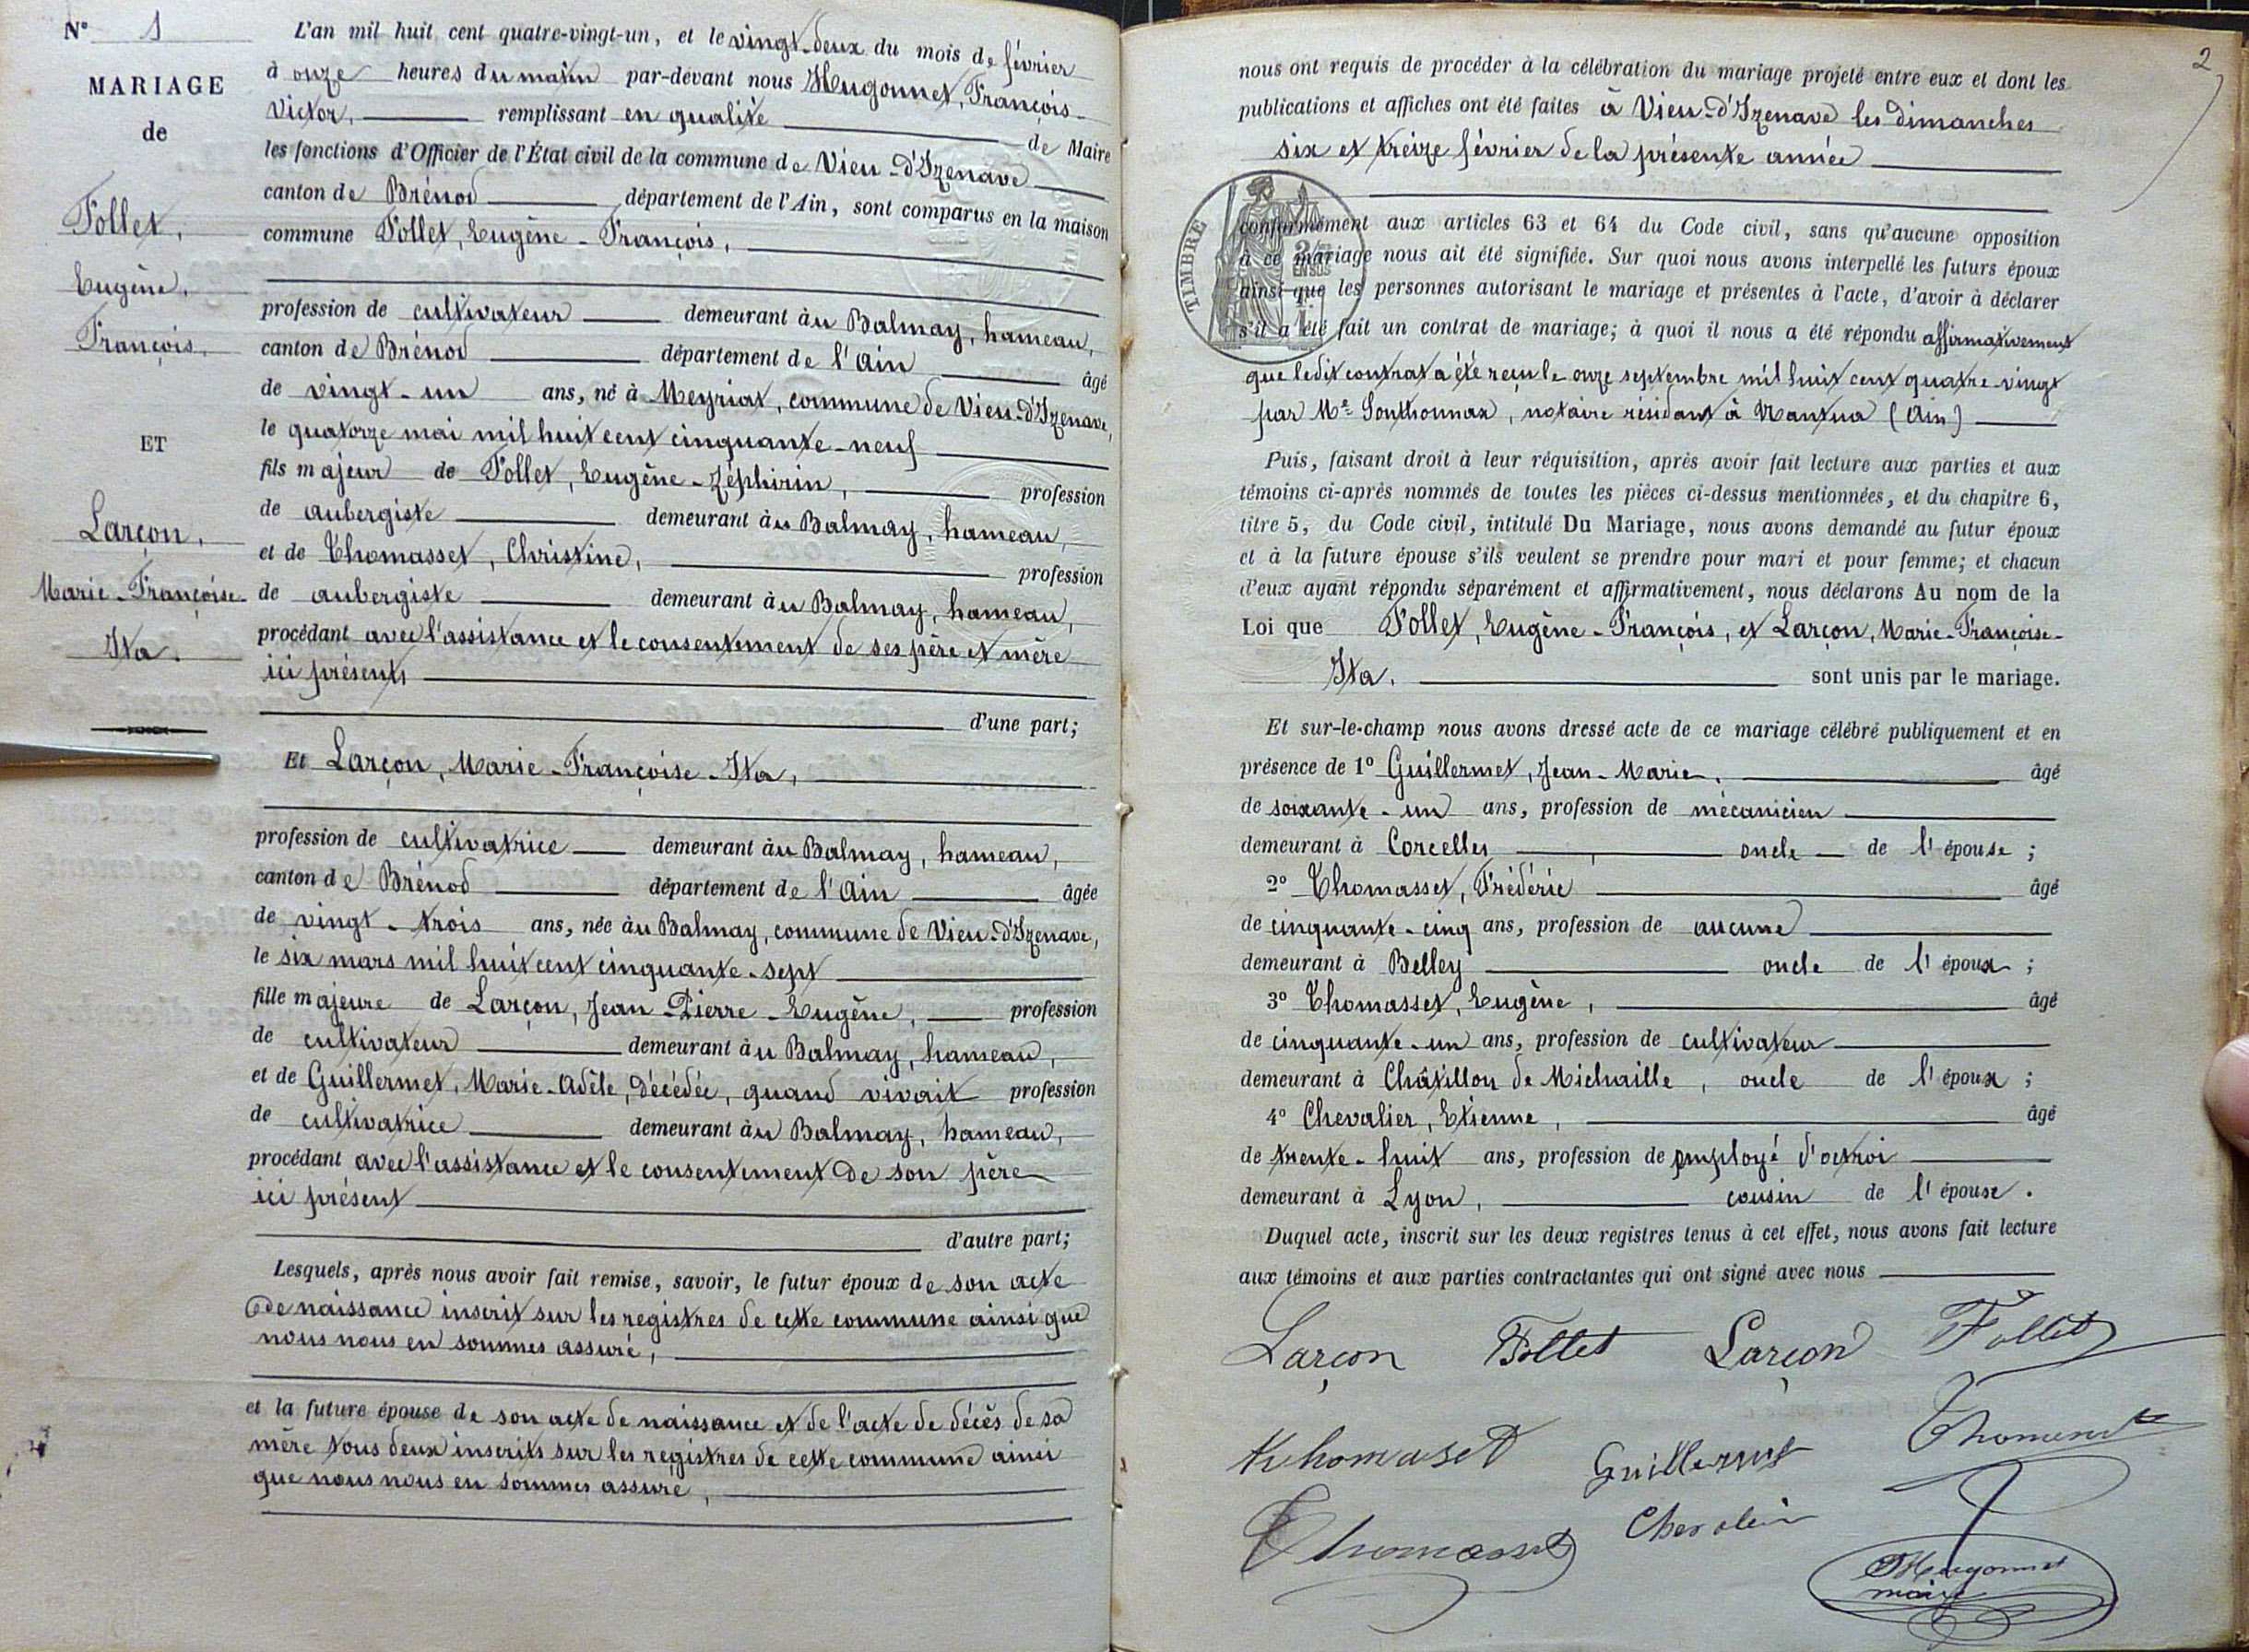 N° 1
MARIAGE
de
Follet,
Eugène,
François,
ET
Larçon,
Marie-Françoise-
Ita.
L'an mil huit cent quatre-vingt-un, et le vingt-deux du mois de février
à onze heures du matin par-devant nous Hugonnet, François-
Victor, remplissant en qualité de Maire
les fonctions d'Officier de l'État civil de la commune de Vieu-d'Izenave
canton de Brénod département de l'Ain, sont comparus en la maison
commune Follet, Eugène-François,
profession de cultivateur demeurant à u Balmay, hameau,
canton de Brénod département de l'Ain âgé
de vingt-un ans, né à Meyriat, commune de Vieu-d'Izenave,
le quatorze mai mil huit cent cinquante-neuf
fils majeur de Follet, Eugène-Zéphirin, profession
de aubergiste demeurant à u Balmay, hameau,
et de Thomasset, Christine, profession
de aubergiste demeurant à u Balmay, hameau,
procédant avec l'assistance et le consentement de ses père et mère
ici présents
d'une part;
Et Larçon, Marie-Françoise-Ita,
profession de cultivatrice demeurant à u Balmay, hameau,
canton de Brénod département de l'Ain âgée
de vingt-trois ans, née à u Balmay, commune de Vieu-d'Izenave,
le six mars mil huit cent cinquante-sept
fille majeure de Larçon, Jean-Pierre-Eugène, profession
de cultivateur demeurant à u Balmay, hameau,
et de Guillermet, Marie-Adèle, décédée, quand vivait profession
de cultivatrice demeurant à u Balmay, hameau,
procédant avec l'assistance et le consentement de son père
ici présent
d'autre part;
Lesquels, après nous avoir fait remise, savoir, le futur époux de son acte
de naissance inscrit sur les registres de cette commune ainsi que
nous nous en sommes assuré,
et la future épouse de son acte de naissance et de l'acte de décès de sa
mère tous deux inscrits sur les registres de cette commune ainsi
que nous nous en sommes assuré,
2
nous ont requis de procéder à la célébration du mariage projeté entre eux et dont les
publications et affiches ont été faites à Vieu-d'Izenave les dimanches
six et treize février de la présente année
TIMBRE
conformément aux articles 63 et 64 du Code civil, sans qu'aucune opposition
à ce mariage nous ait été signifiée. Sur quoi nous avons interpellé les futurs époux
ainsi que les personnes autorisant le mariage et présentes à l'acte, d'avoir à déclarer
s'il a été fait un contrat de mariage; à quoi il nous a été répondu affirmativement
que ledit contrat a été reçu le onze septembre mil huit cent quatre-vingt
par Me Sonthonnax, notaire résidant à Nantua (Ain)
Puis, faisant droit à leur réquisition, après avoir fait lecture aux parties et aux
témoins ci-après nommés de toutes les pièces ci-dessus mentionnées, et du chapitre 6,
titre 5, du Code civil, intitulé Du Mariage, nous avons demandé au futur époux
et à la future épouse s'ils veulent se prendre pour mari et pour femme; et chacun
d'eux ayant répondu séparément et affirmativement, nous déclarons Au nom de la
Loi que Follet, Eugène-François, et Larçon, Marie-Françoise-
Ita. sont unis par le mariage.
Et sur-le-champ nous avons dressé acte de ce mariage célébré publiquement et en
présence de 1° Guillermet, Jean-Marie, âgé
de soixante-un ans, profession de mécanicien
demeurant à Corcelles, oncle de l'épouse;
2° Thomasset, Frédéric âgé
de cinquante-cinq ans, profession de aucune
demeurant à Belley oncle de l'époux;
3° Thomasset, Eugène, âgé
de cinquante-un ans, profession de cultivateur
demeurant à Châtillon de Michaille, oncle de l'époux;
4° Chevalier, Etienne, âgé
de trente-huit ans, profession de employé d'octroi
demeurant à Lyon, cousin de l'épouse.
Duquel acte, inscrit sur les deux registres tenus à cet effet, nous avons fait lecture
aux témoins et aux parties contractantes qui ont signé avec nous
Larçon Follet Larçon Follet
thomaset Guillermet
Thomasset Chevalier
Hugonnet
maire